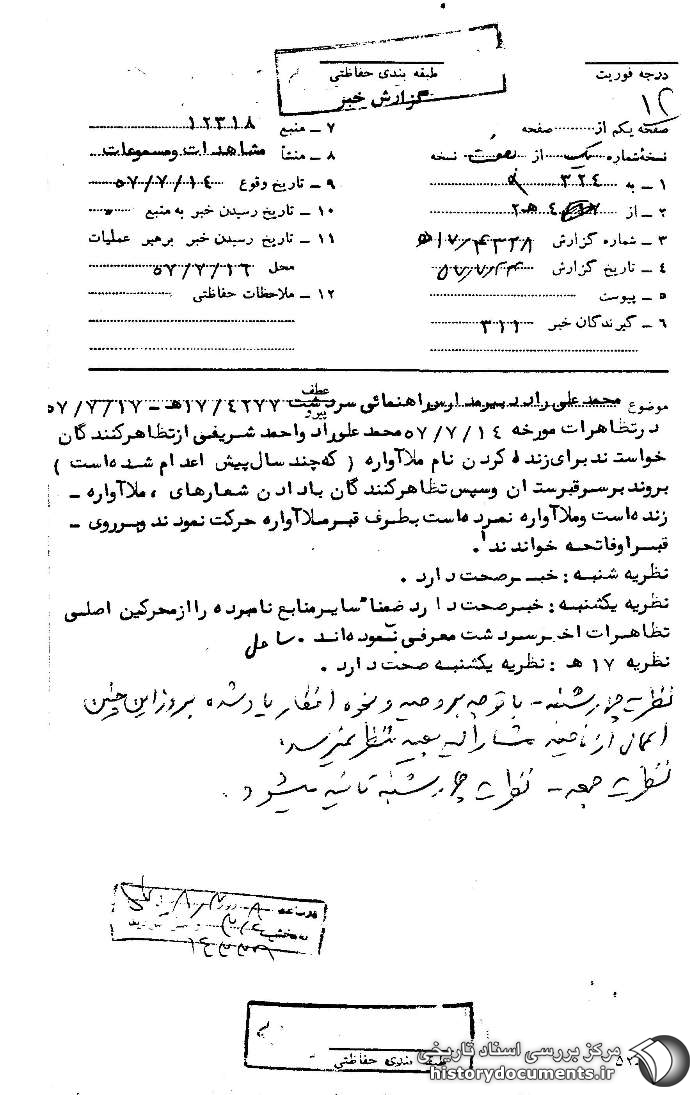 درجه فوریت
طبقه بندی حفاظتی
گزارش خبر
صفحه یکم از صفحه
نسخهٔ شماره یک از نسخه
۱ ـ به ۳۲۴
۲ ـ از
۳ ـ شماره گزارش
۴ ـ تاریخ گزارش
۵ ـ پیوست
۶ ـ گیرندگان خبر ۳۱۱
۷ ـ منبع ۱۲۳۱۸
۸ ـ منشأ مشاهدات ومسموعات
۹ ـ تاریخ وقوع ۵۷/۷/۱۴
۱۰ ـ تاریخ رسیدن خبر به منبع
۱۱ ـ تاریخ رسیدن خبر برهبر عملیات
محل ۵۷/۷/۱۶
۱۲ ـ ملاحظات حفاظتی
موضوع محمد علی راد دبیر مدارس راهنمائی سردشت عطف پیرو ۱۷/۴۲۷۷هـ ـ ۵۷/۷/۱۷
در تظاهرات مورخه ۵۷/۷/۱۴ محمد علی راد واحمد شریفی از تظاهر کنندگان
خواستند برای زنده کردن نام ملا آواره ( که چند سال پیش اعدام شده است )
بروند بر سر قبرستان وسپس تظاهر کنندگان با دادن شعارهای ، ملا آواره ـ
زنده است وملا آواره نمرده است بطرف قبر ملا آواره حرکت نمودند وبر روی ـ
قبر او فاتحه خواندند .
نظریه شنبه : خبر صحت دارد .
نظریه یکشنبه : خبر صحت دارد ضمنا سایر منابع نامبرده را از محرکین اصلی
تظاهرات اخیر سردشت معرفی نموده‌اند .
نظریه ۱۷ هـ : نظریه یکشنبه صحت دارد .
نظریه چهارشنبه ـ با توجه بروحیه و نحوه افکار یاد شده بروز این چنین
اعمال از ناحیه مشارالیه بعید بنظر نمیرسد .
نظریه جمعه ـ نظریه چهارشنبه تائید میشود .
طبقه بندی حفاظتی
مرکز بررسی اسناد تاریخی
historydocuments.ir